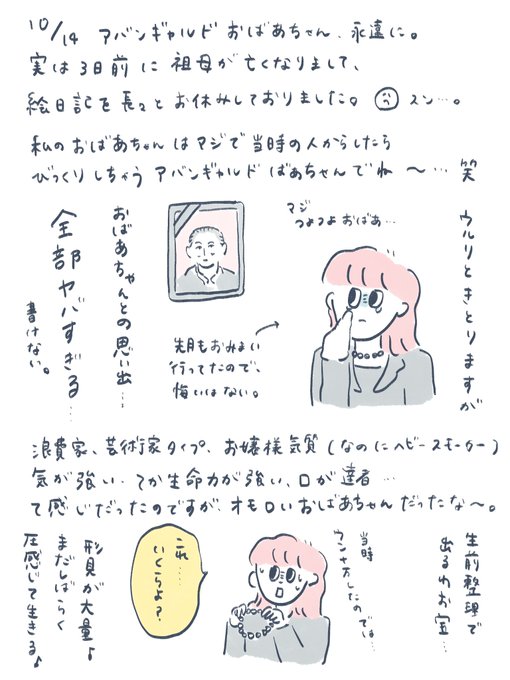 10/14 アバンギャルドおばあちゃん、永遠に。
実は3日前に祖母が亡くなりまして、
絵日記を長々とお休みしておりました。スン…。
私のおばあちゃんはマジで当時の人からしたら
びっくりしちゃうアバンギャルドばあちゃんでね〜…笑
ウルリときとりますが
マジ
つよつよおばあ…
おばあちゃんとの思い出…
全部ヤバすぎる…
書けない。
先月もおみまい
行ってたので、
悔いはない。
浪費家、芸術家タイプ、お嬢様気質(なのにヘビースモーカー)
気が強い・てか生命力が強い、口が達者…
て感じだったのですが、オモロいおばあちゃんだったな〜。
生前整理で
出るわお宝…
当時
ウン十万したのでは…
これ……
いくらよ?
形見が大量♪
まだしばらく
圧感じて生きる♪